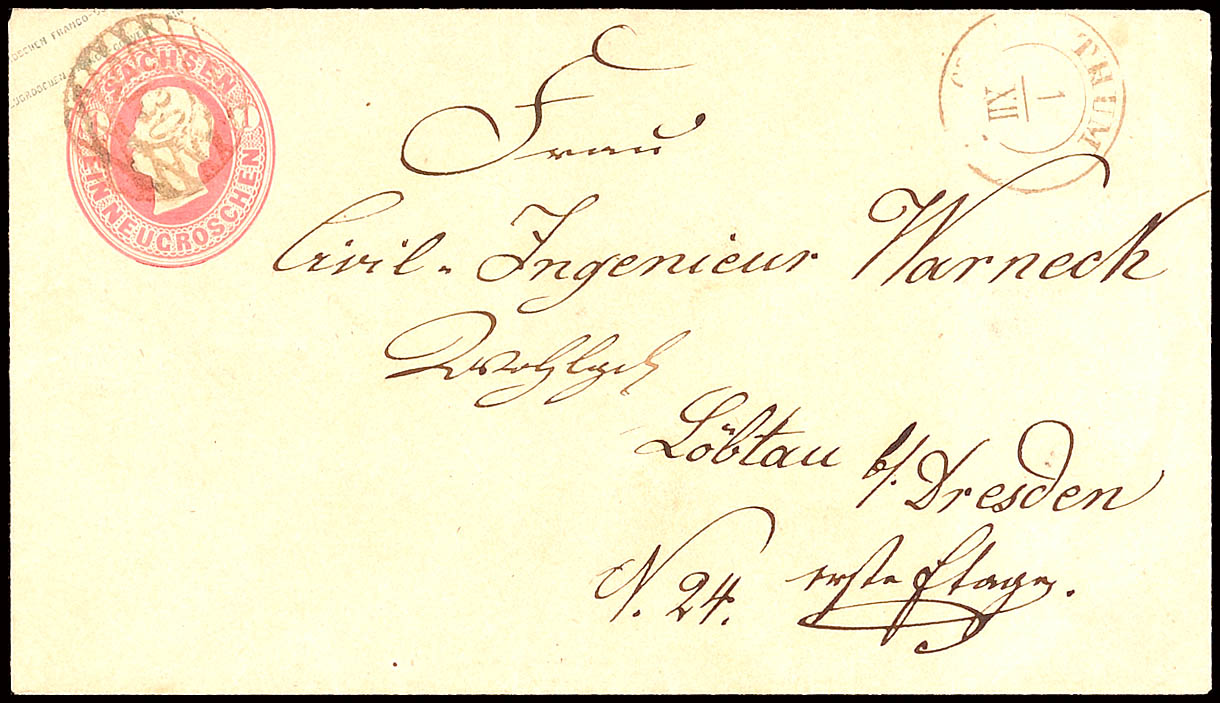 SACHSEN
EIN NEUGROSCHEN
THUM
1
XII
Frau
Civil-Ingenieur Warneck
Löbtau b/. Dresden
N. 24. erste Etage.